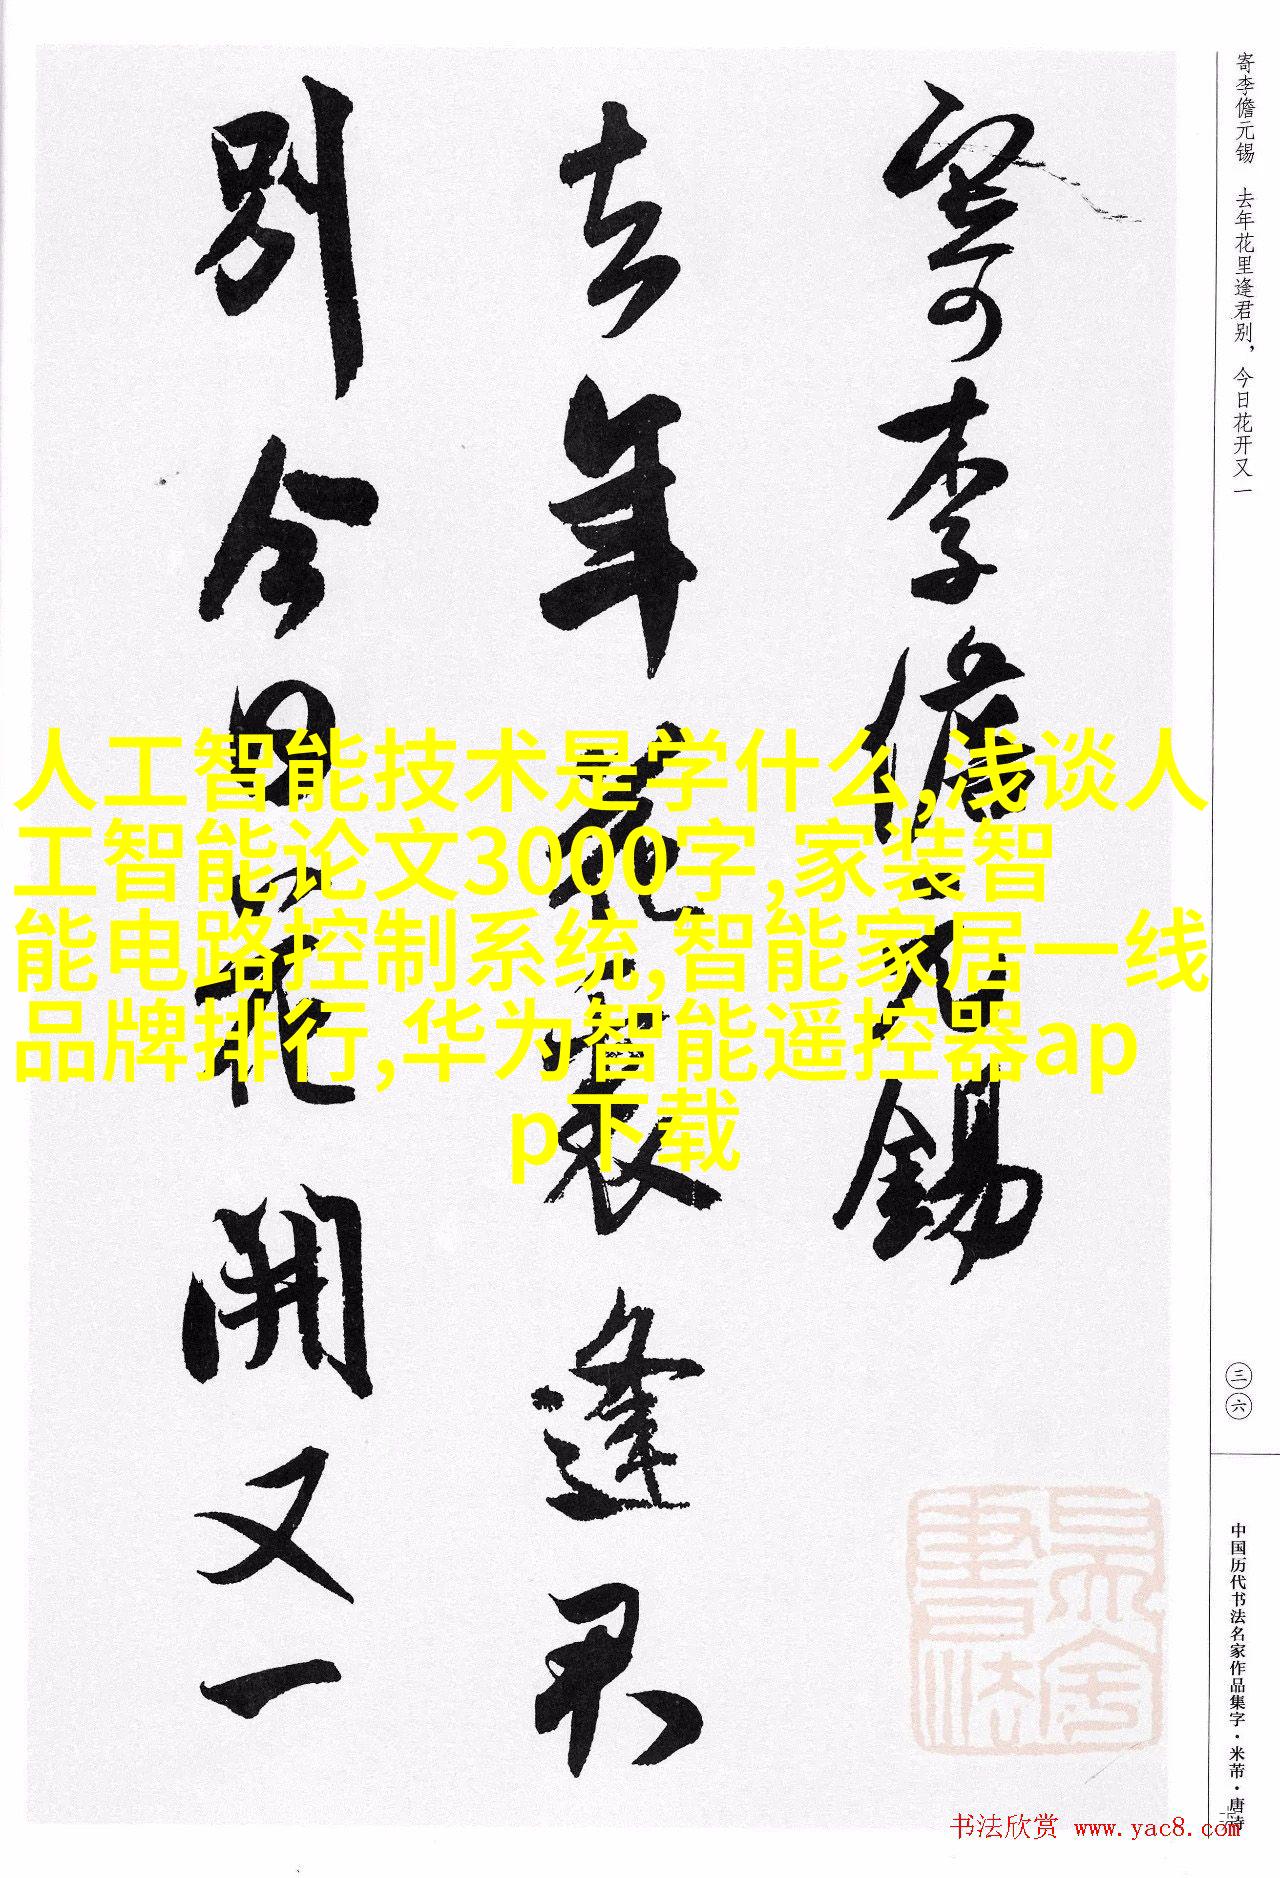 寄李儋元锡 去年花里逢君别，今日花开又一
寄李儋元錫
去年花裏逢君
别今日花開又一
人工智能技术是学什么,浅谈人
工智能论文3000字,家装智
能电路控制系统,智能家居一线
品牌排行,华为智能遥控器ap
p下载
三六
中国历代书法名家作品集字·米芾·唐诗
书法欣赏 www.yac8.com